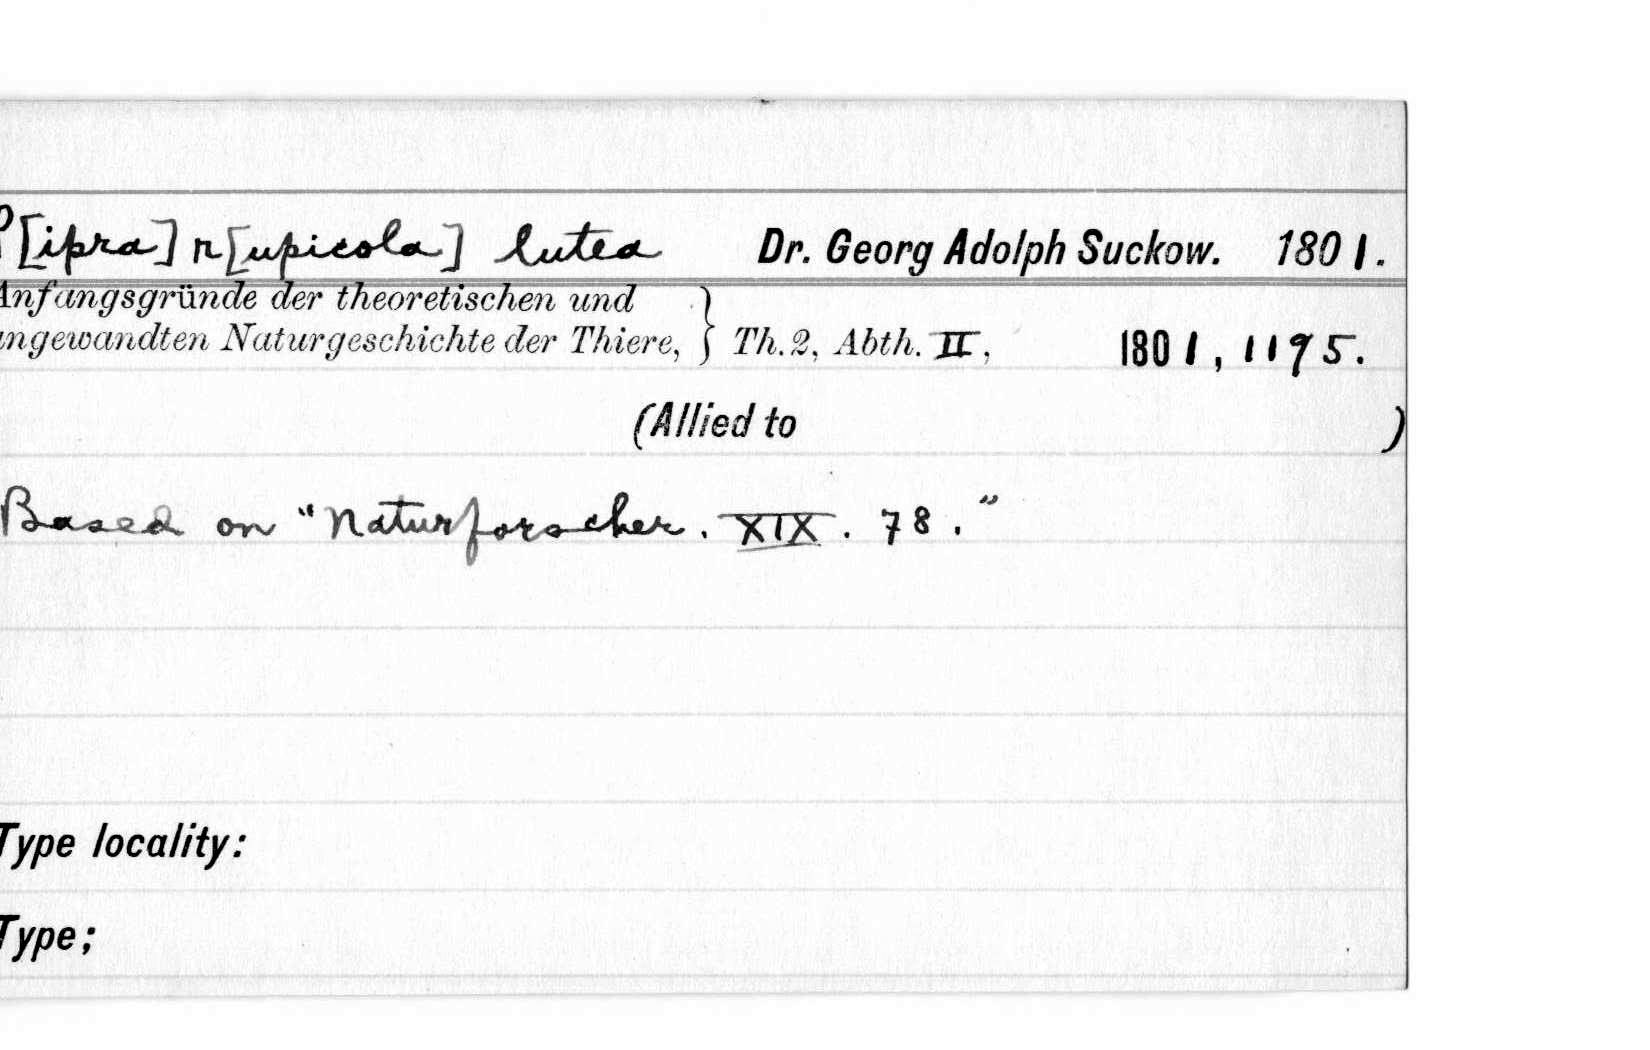 P[ipra] r[upicola] lutea Dr. Georg Adolph Suckow. 1801.
Anfangsgründe der theoretischen und
angewandten Naturgeschichte der Thiere, } Th. 2, Abth. II, 1801, 1195.
(Allied to )
Based on "Naturforscher. XIX. 78."
Type locality:
Type;